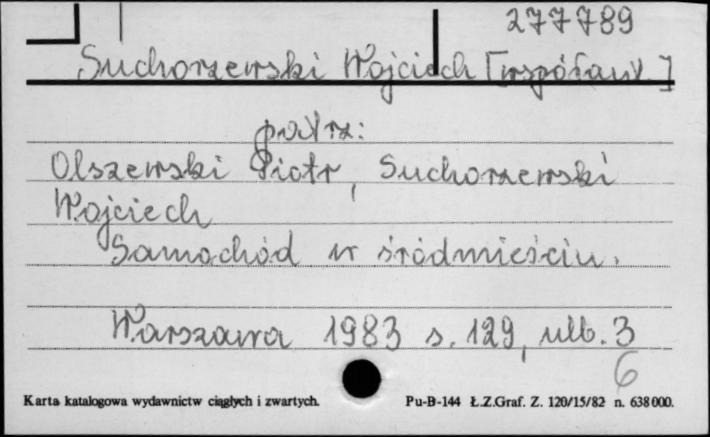 277789
Suchorzewski Wojciech [współaut.]
patrz:
Olszewski Piotr, Suchorzewski
Wojciech
Samochód w śródmieściu.
Warszawa 1983 s. 129, ulb. 3
6
Karta katalogowa wydawnictw ciągłych i zwartych. Pu-B-144 Ł.Z.Graf. Z. 120/15/82 n. 638000.